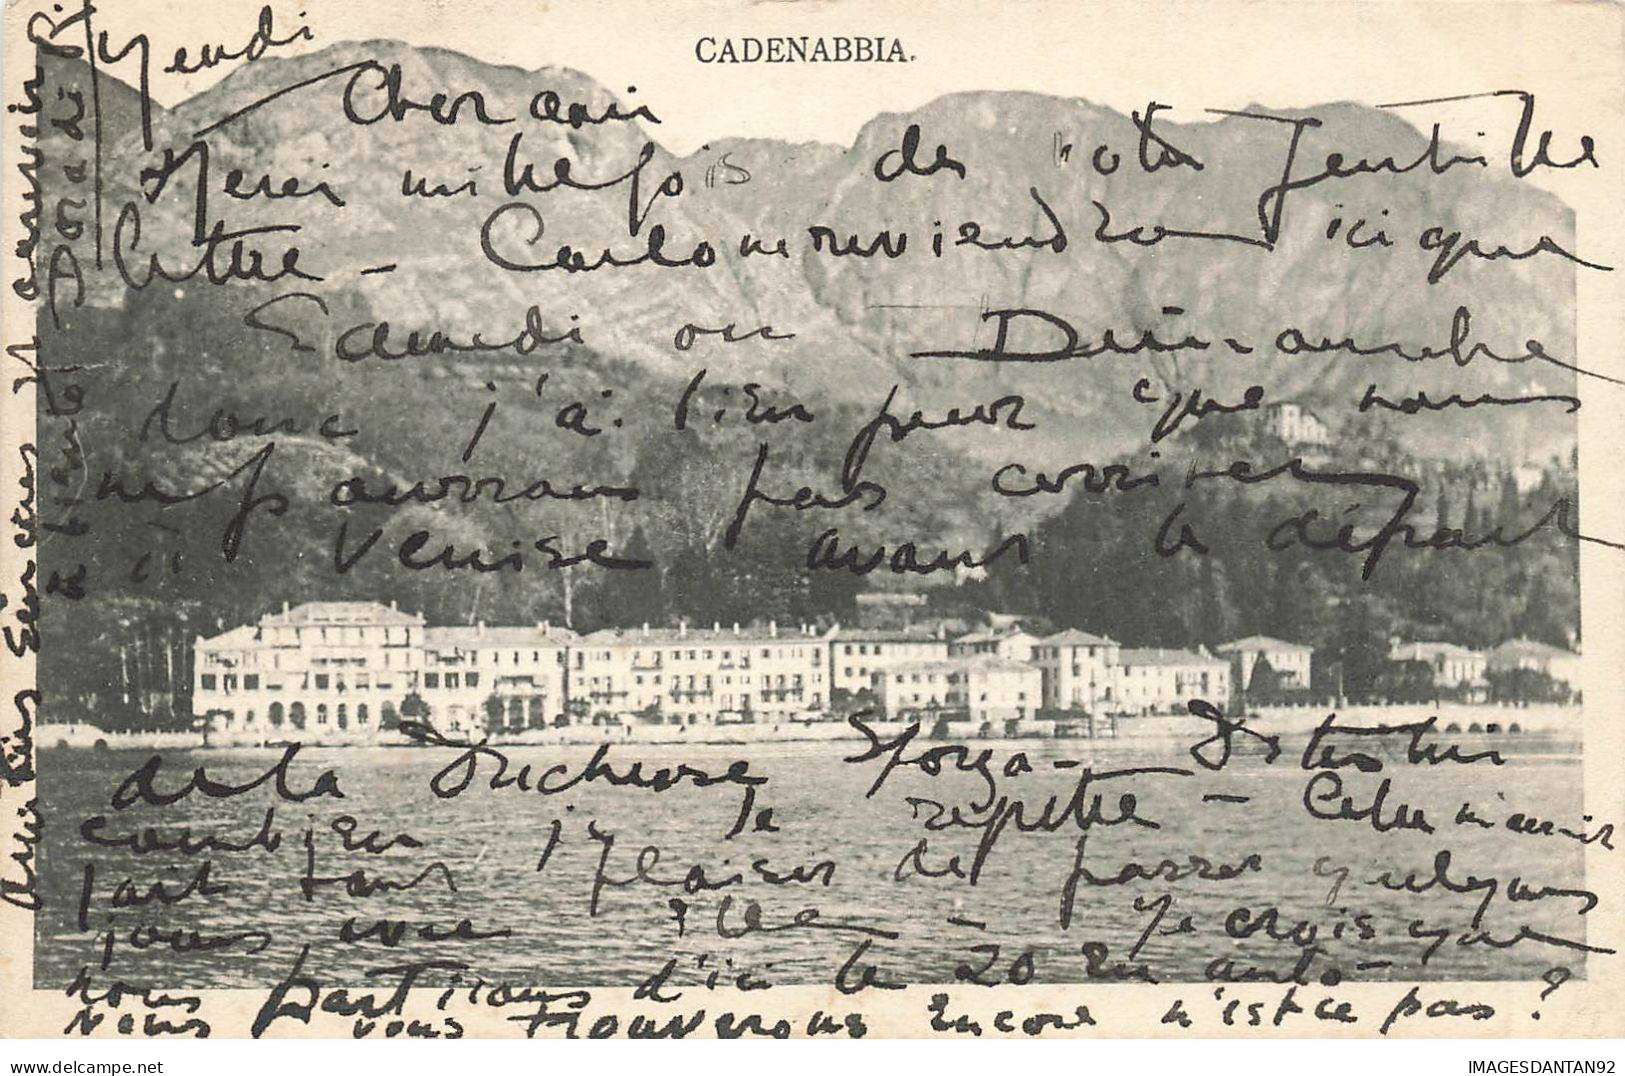 CADENABBIA.
Jeudi
Cher ami
Merci mille fois de votre gentille
lettre - Carlo ne reviendra ici que
Samedi ou Dimanche
donc j'ai bien peur que nous
ne pourrons pas arriver
à Venise avant le départ
de la Duchesse Sforza -
combien je le répette - Cela m'aurait
fait tant plaisir de passer quelques
jours avec Elle - Je crois que
nous partirons d'ici le 20 en auto -
Nous vous trouverons encore n'est ce pas ?
Amitiés sincères et au revoir
à bientôt Dora di R.
IMAGESDANTAN92